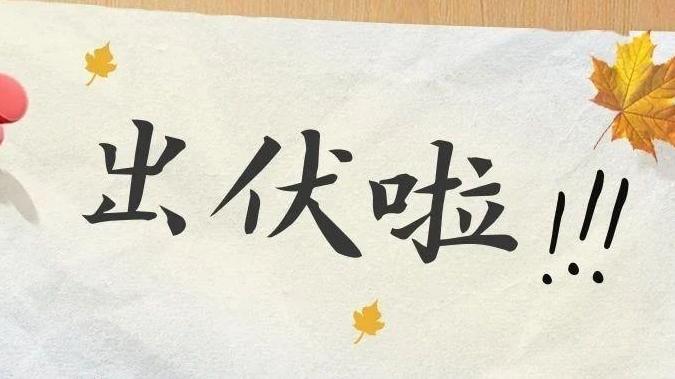 出伏啦!!!